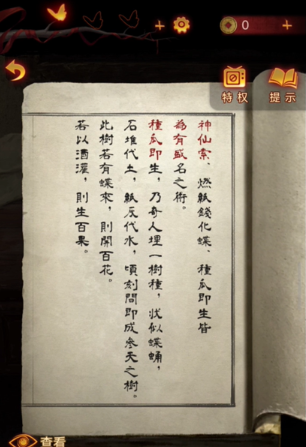 0
特权
提示
神仙索、燃紙錢化蝶、種瓜即生皆
為有威名之術。
種瓜即生,乃奇人埋一樹種,狀似蝶蛹,
石堆代土,紙灰代水,頃刻間即成參天之樹。
此樹若有蝶來,則開百花。
若以酒灌,則生百果。
查看